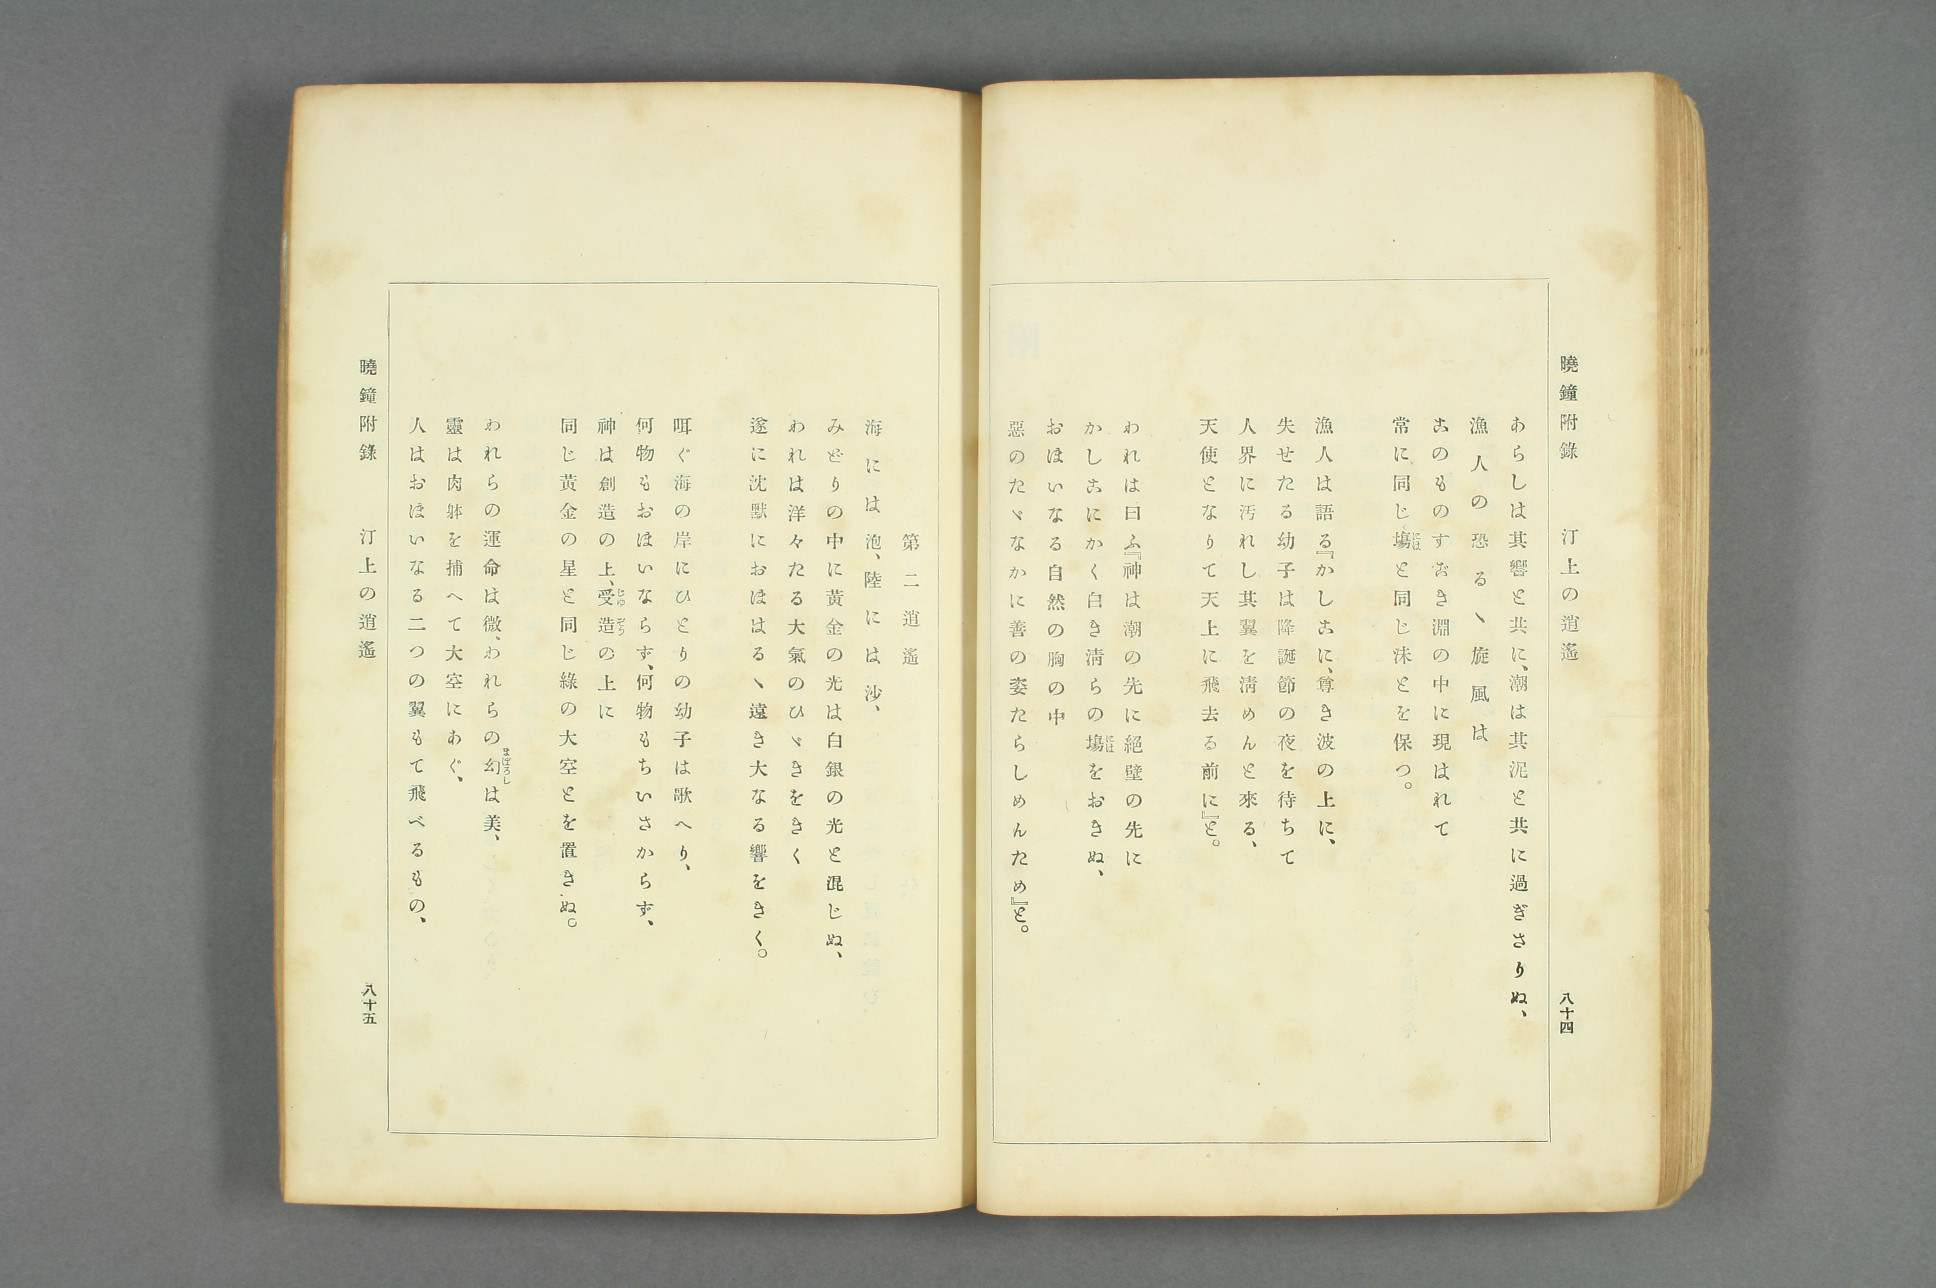 曉鐘附錄　汀上の逍遙
八十四
あらしは其響と共に、潮は其泥と共に過ぎさりぬ、
漁人の恐るヽ旋風は
このものすごき淵の中に現はれて
常に同じ塲と同じ沫とを保つ。
漁人は語る『かしこに、尊き波の上に、
失せたる幼子は降誕節の夜を待ちて
人界に汚れし其翼を淸めんと來る、
天使となりて天上に飛去る前に』と。
われは曰ふ『神は潮の先に絕壁の先に
かしこにかく白き淸らの塲をおきぬ、
おほいなる自然の胸の中
惡のたヾなかに善の姿たらしめんため』と。
第二逍遙
海には泡、陸には沙、
みどりの中に黃金の光は白銀の光と混じぬ、
われは洋々たる大氣のひヾきをきく
遂に沈默におほはるヽ遠き大なる響をきく。
咡ぐ海の岸にひとりの幼子は歌へり、
何物もおほいならず、何物もちいさからず、
神は創造の上、受造の上に
同じ黃金の星と同じ綠の大空とを置きぬ。
われらの運命は微、われらの幻は美、
靈は肉躰を捕へて大空にあぐ、
人はおほいなる二つの翼もて飛べるもの、
曉鐘附錄　汀上の逍遙
八十五